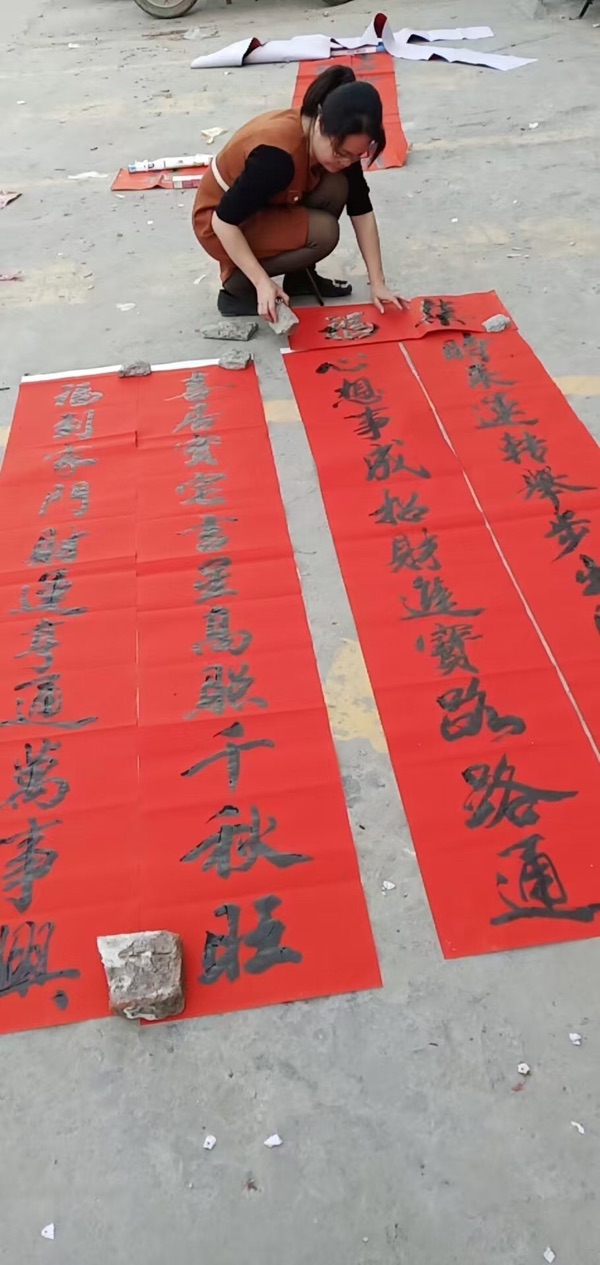 時来運转舉步出
心想事成招財進寶路路通
喜居寶宅吉星高照千秋旺
福到家門財運亨通萬事興